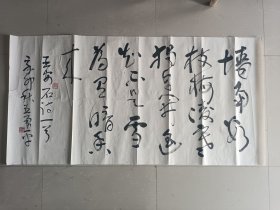 墙角数
枝梅凌寒
独自开遥
知不是雪
为有暗香
来
王安石诗一首